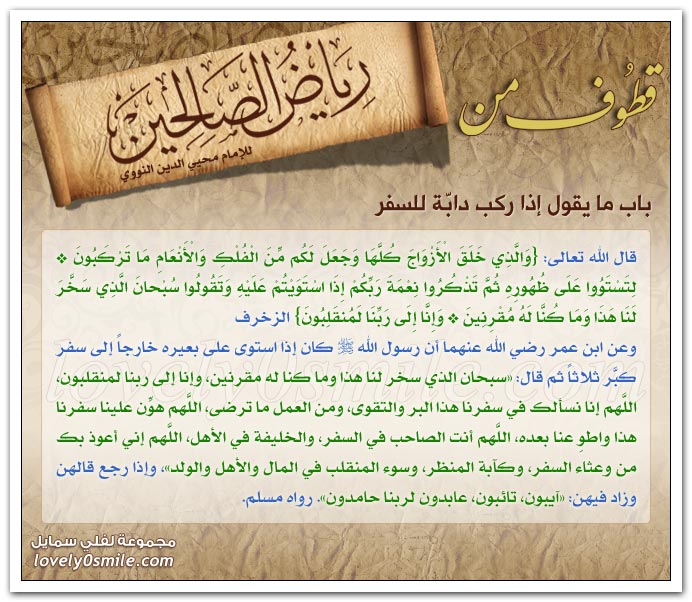 قطوف من
رياض الصالحين
للإمام محيي الدين النووي
باب ما يقول إذا ركب دابّة للسفر
قال الله تعالى: {وَالَّذِي خَلَقَ الْأَزْوَاجَ كُلَّهَا وَجَعَلَ لَكُم مِّنَ الْفُلْكِ وَالْأَنْعَامِ مَا تَرْكَبُونَ ❖
لِتَسْتَوُوا عَلَى ظُهُورِهِ ثُمَّ تَذْكُرُوا نِعْمَةَ رَبِّكُمْ إِذَا اسْتَوَيْتُمْ عَلَيْهِ وَتَقُولُوا سُبْحَانَ الَّذِي سَخَّرَ
لَنَا هَذَا وَمَا كُنَّا لَهُ مُقْرِنِينَ ❖ وَإِنَّا إِلَى رَبِّنَا لَمُنقَلِبُونَ} الزخرف
وعن ابن عمر رضي الله عنهما أن رسول الله ﷺ كان إذا استوى على بعيره خارجاً إلى سفر
كبَّر ثلاثاً ثم قال: «سبحان الذي سخر لنا هذا وما كنا له مقرنين، وإنا إلى ربنا لمنقلبون،
اللَّهم إنا نسألك في سفرنا هذا البر والتقوى، ومن العمل ما ترضى، اللَّهم هوِّن علينا سفرنا
هذا واطوِ عنا بعده، اللَّهم أنت الصاحب في السفر، والخليفة في الأهل، اللَّهم إني أعوذ بك
من وعثاء السفر، وكآبة المنظر، وسوء المنقلب في المال والأهل والولد»، وإذا رجع قالهن
وزاد فيهن: «آيبون، تائبون، عابدون لربنا حامدون». رواه مسلم.
lovely0smile.com
مجموعة لفلي سمايل
lovely0smile.com